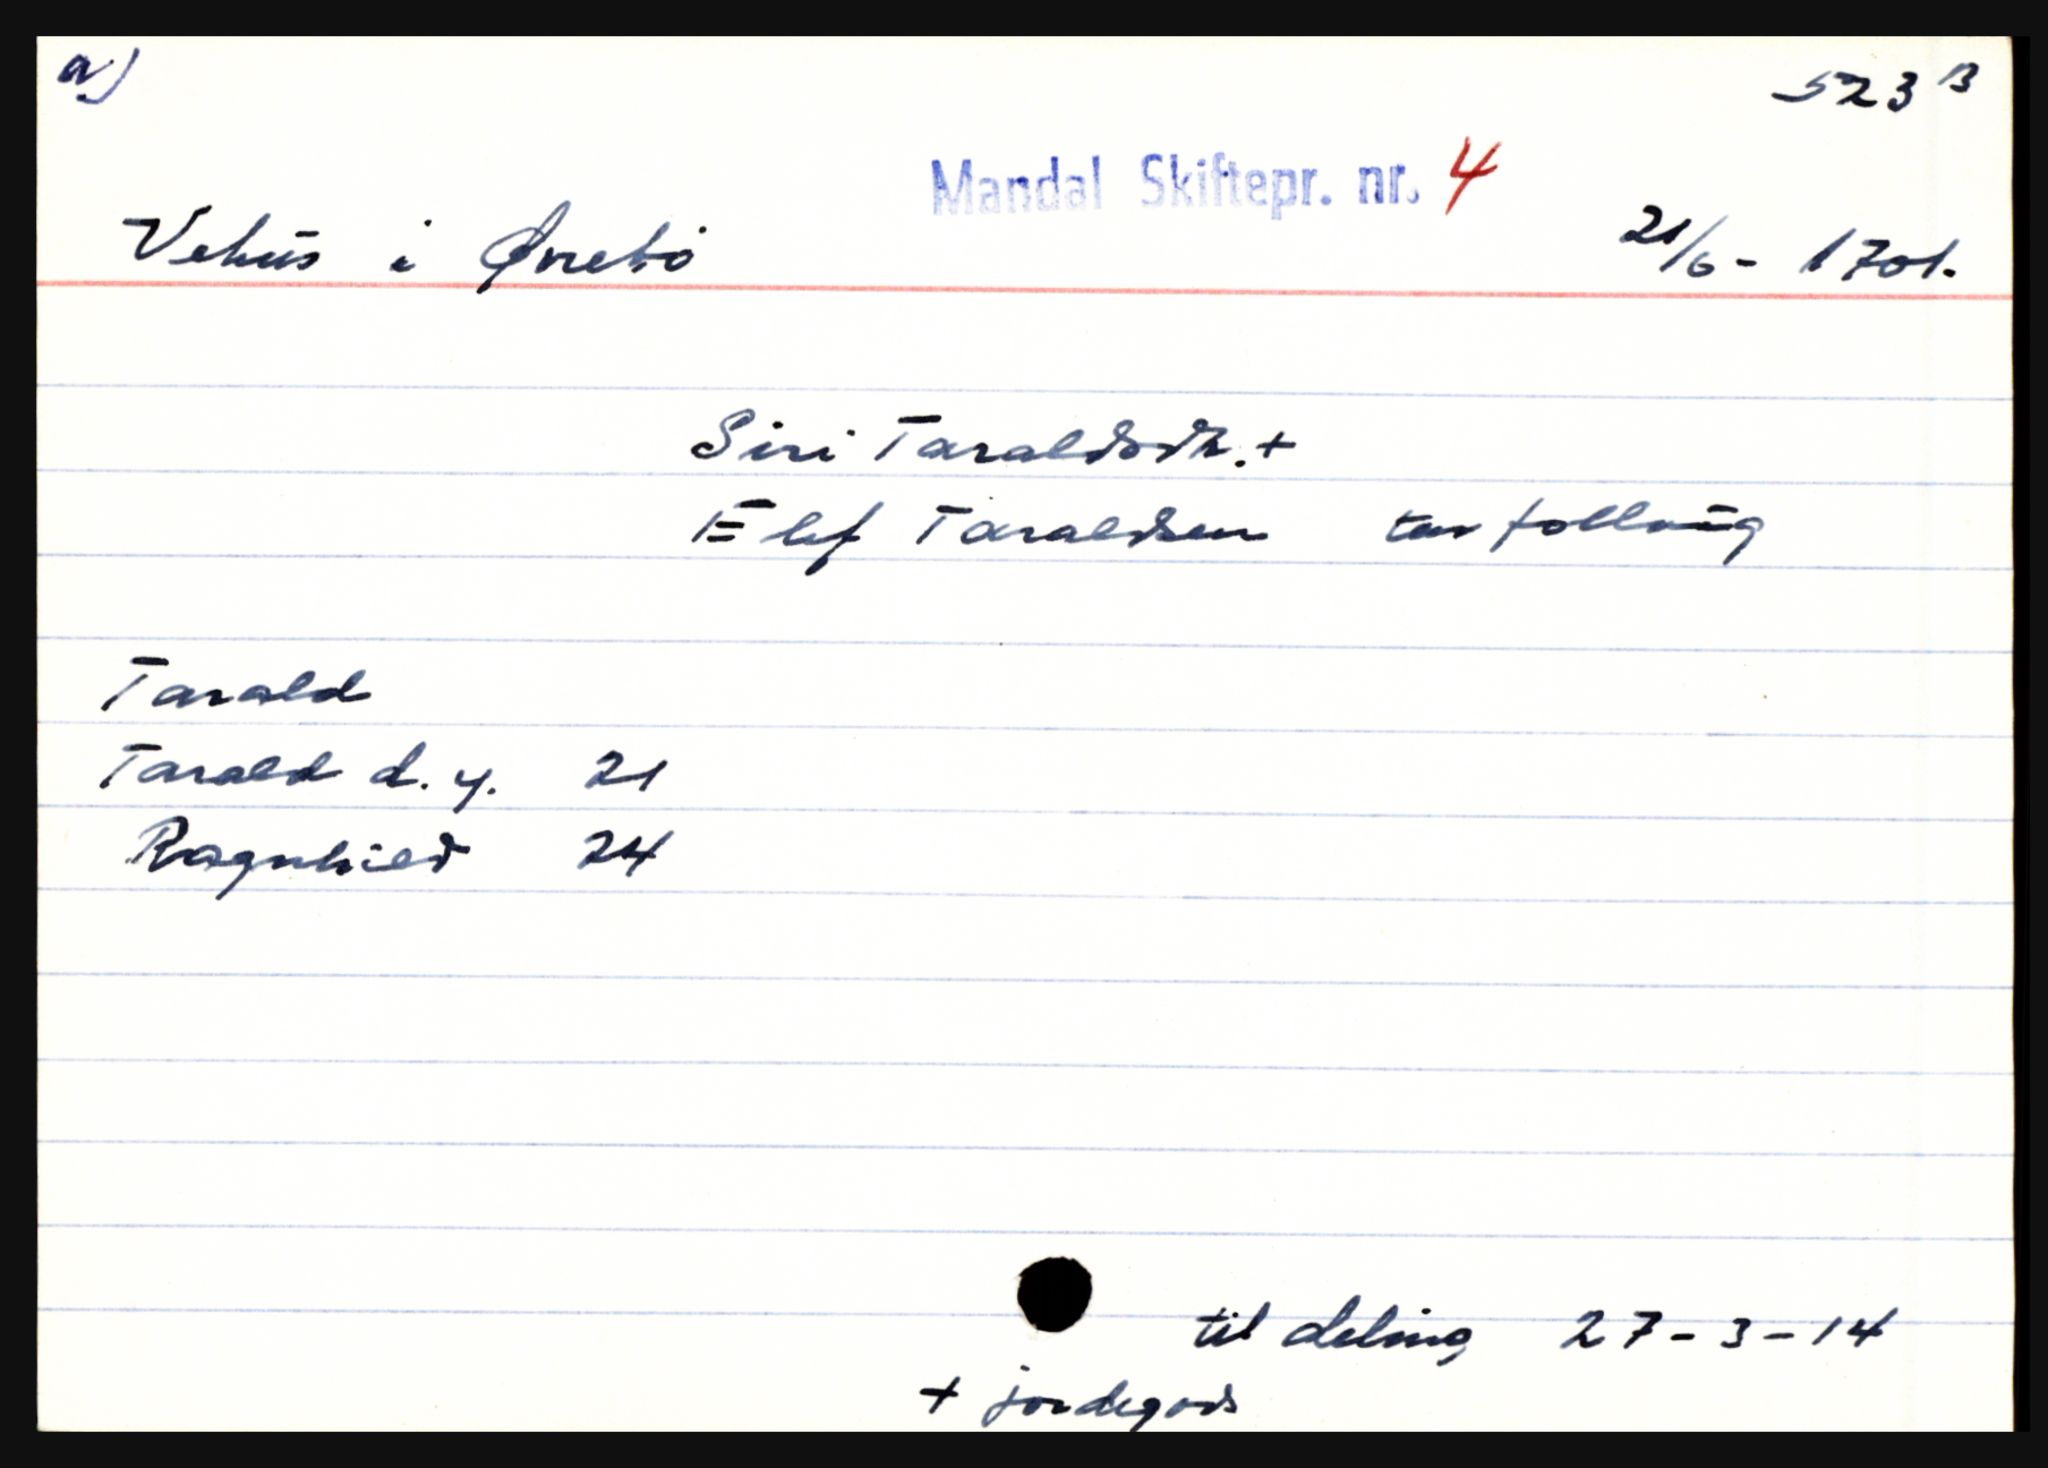 a)
523 B
Mandal Skiftepr. nr. 4
Vehus i Øvrebö 21/6 - 1701.
Siri Taraldsdtr. +
Elef Taraldsen
Tarald
Tarald d. y. 21
Ragnhild 24
til deling 27-3-14
+ jordegods